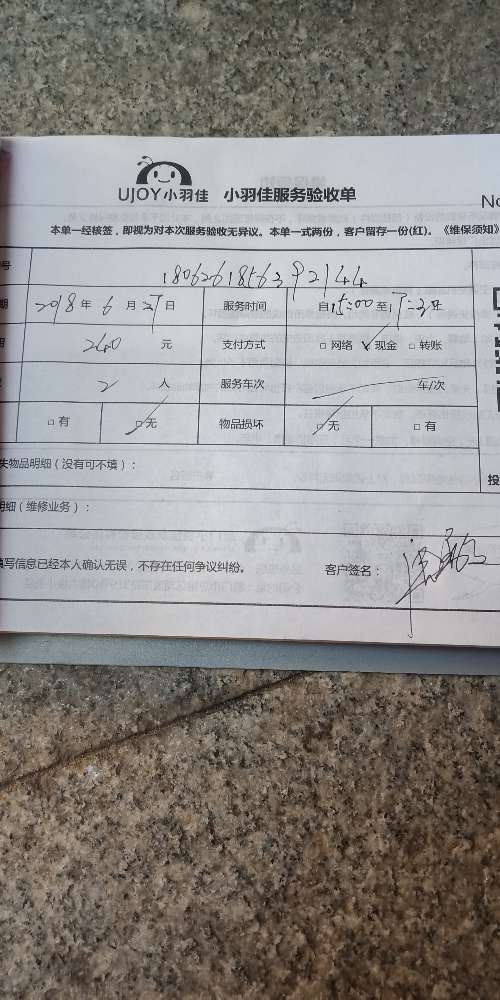 UJOY小羽佳 小羽佳服务验收单
No
本单一经核签，即视为对本次服务验收无异议。本单一式两份，客户留存一份(红)。《维保须知》
号 1806261856392144
期 2018 年 6 月 27 日 服务时间 自 15:00 至 17:30
用 240 元 支付方式 □ 网络 ✓ 现金 □ 转账
2 人 服务车次 车/次
□ 有 □ 无 物品损坏 □ 无 □ 有
失物品明细（没有可不填）：
投
明细（维修业务）：
填写信息已经本人确认无误，不存在任何争议纠纷。 客户签名：